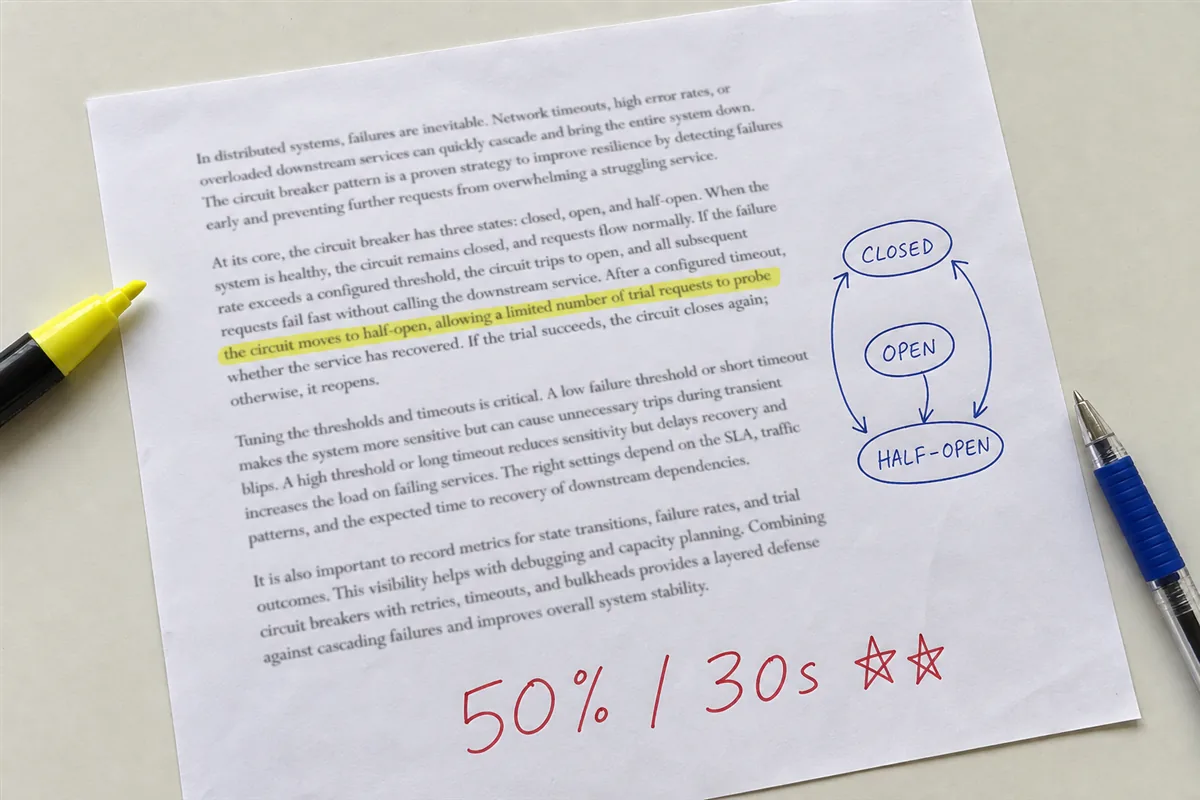 In distributed systems, failures are inevitable. Network timeouts, high error rates, or
overloaded downstream services can quickly cascade and bring the entire system down.
The circuit breaker pattern is a proven strategy to improve resilience by detecting failures
early and preventing further requests from overwhelming a struggling service.
At its core, the circuit breaker has three states: closed, open, and half-open. When the
system is healthy, the circuit remains closed, and requests flow normally. If the failure
rate exceeds a configured threshold, the circuit trips to open, and all subsequent
requests fail fast without calling the downstream service. After a configured timeout,
the circuit moves to half-open, allowing a limited number of trial requests to probe
whether the service has recovered. If the trial succeeds, the circuit closes again;
otherwise, it reopens.
Tuning the thresholds and timeouts is critical. A low failure threshold or short timeout
makes the system more sensitive but can cause unnecessary trips during transient
blips. A high threshold or long timeout reduces sensitivity but delays recovery and
increases the load on failing services. The right settings depend on the SLA, traffic
patterns, and the expected time to recovery of downstream dependencies.
It is also important to record metrics for state transitions, failure rates, and trial
outcomes. This visibility helps with debugging and capacity planning. Combining
circuit breakers with retries, timeouts, and bulkheads provides a layered defense
against cascading failures and improves overall system stability.
CLOSED
OPEN
HALF-OPEN
50% / 30s ☆☆